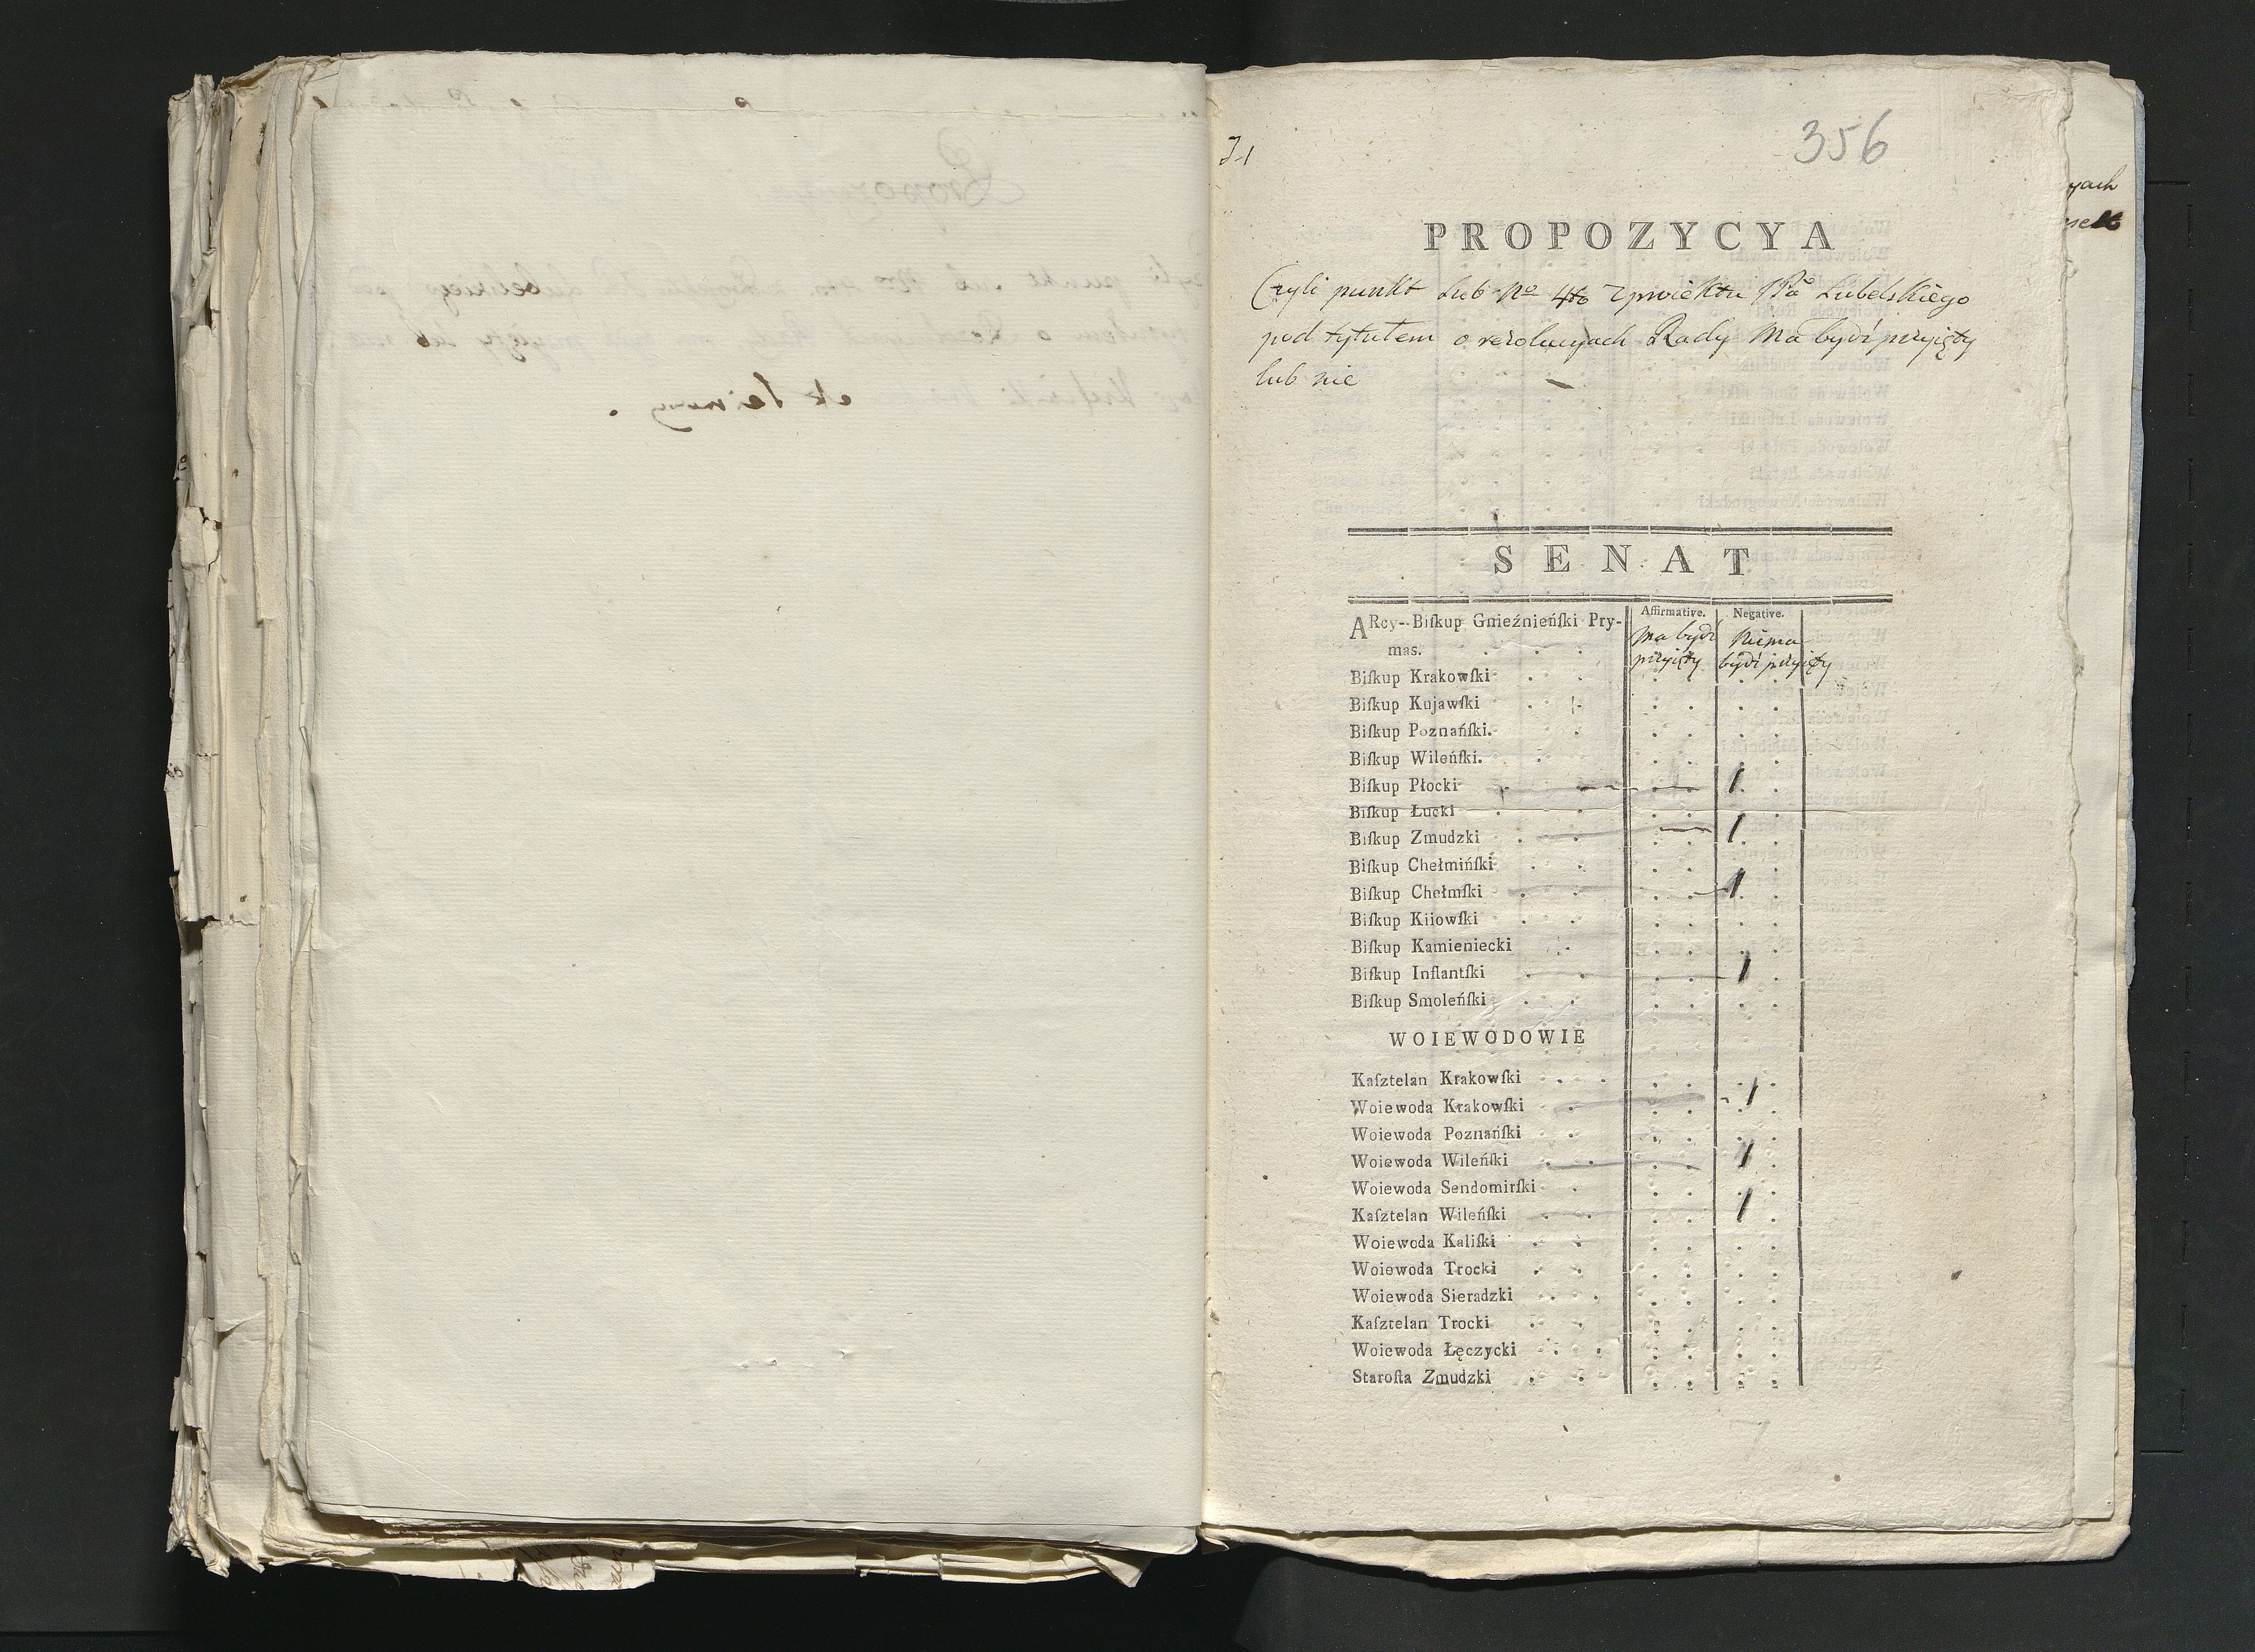 356
PROPOZYCYA
Czyli punkt sub No 4to z proiektu Pa Lubelskiego
pod tytułem o rezolucyach Rady Ma bydź przyięty
lub nie
SENAT
Affirmative. Negative.
ARcy-Biſkup Gnieźnieńſki Pry-
mas.
Ma bydź Niema
przyięty bydź przyięty
Biſkup Krakowſki
Biſkup Kujawſki
Biſkup Poznańſki.
Biſkup Wileńſki.
Biſkup Płocki 1
Biſkup Łucki
Biſkup Zmudzki 1
Biſkup Chełmińſki
Biſkup Chełmſki 1
Biſkup Kiiowſki
Biſkup Kamieniecki
Biſkup Inflantſki 1
Biſkup Smoleńſki
WOIEWODOWIE
Kaſztelan Krakowſki
Woiewoda Krakowſki 1
Woiewoda Poznańſki
Woiewoda Wileńſki 1
Woiewoda Sendomirſki
Kaſztelan Wileńſki 1
Woiewoda Kaliſki
Woiewoda Trocki
Woiewoda Sieradzki
Kaſztelan Trocki
Woiewoda Łęczycki
Staroſta Zmudzki